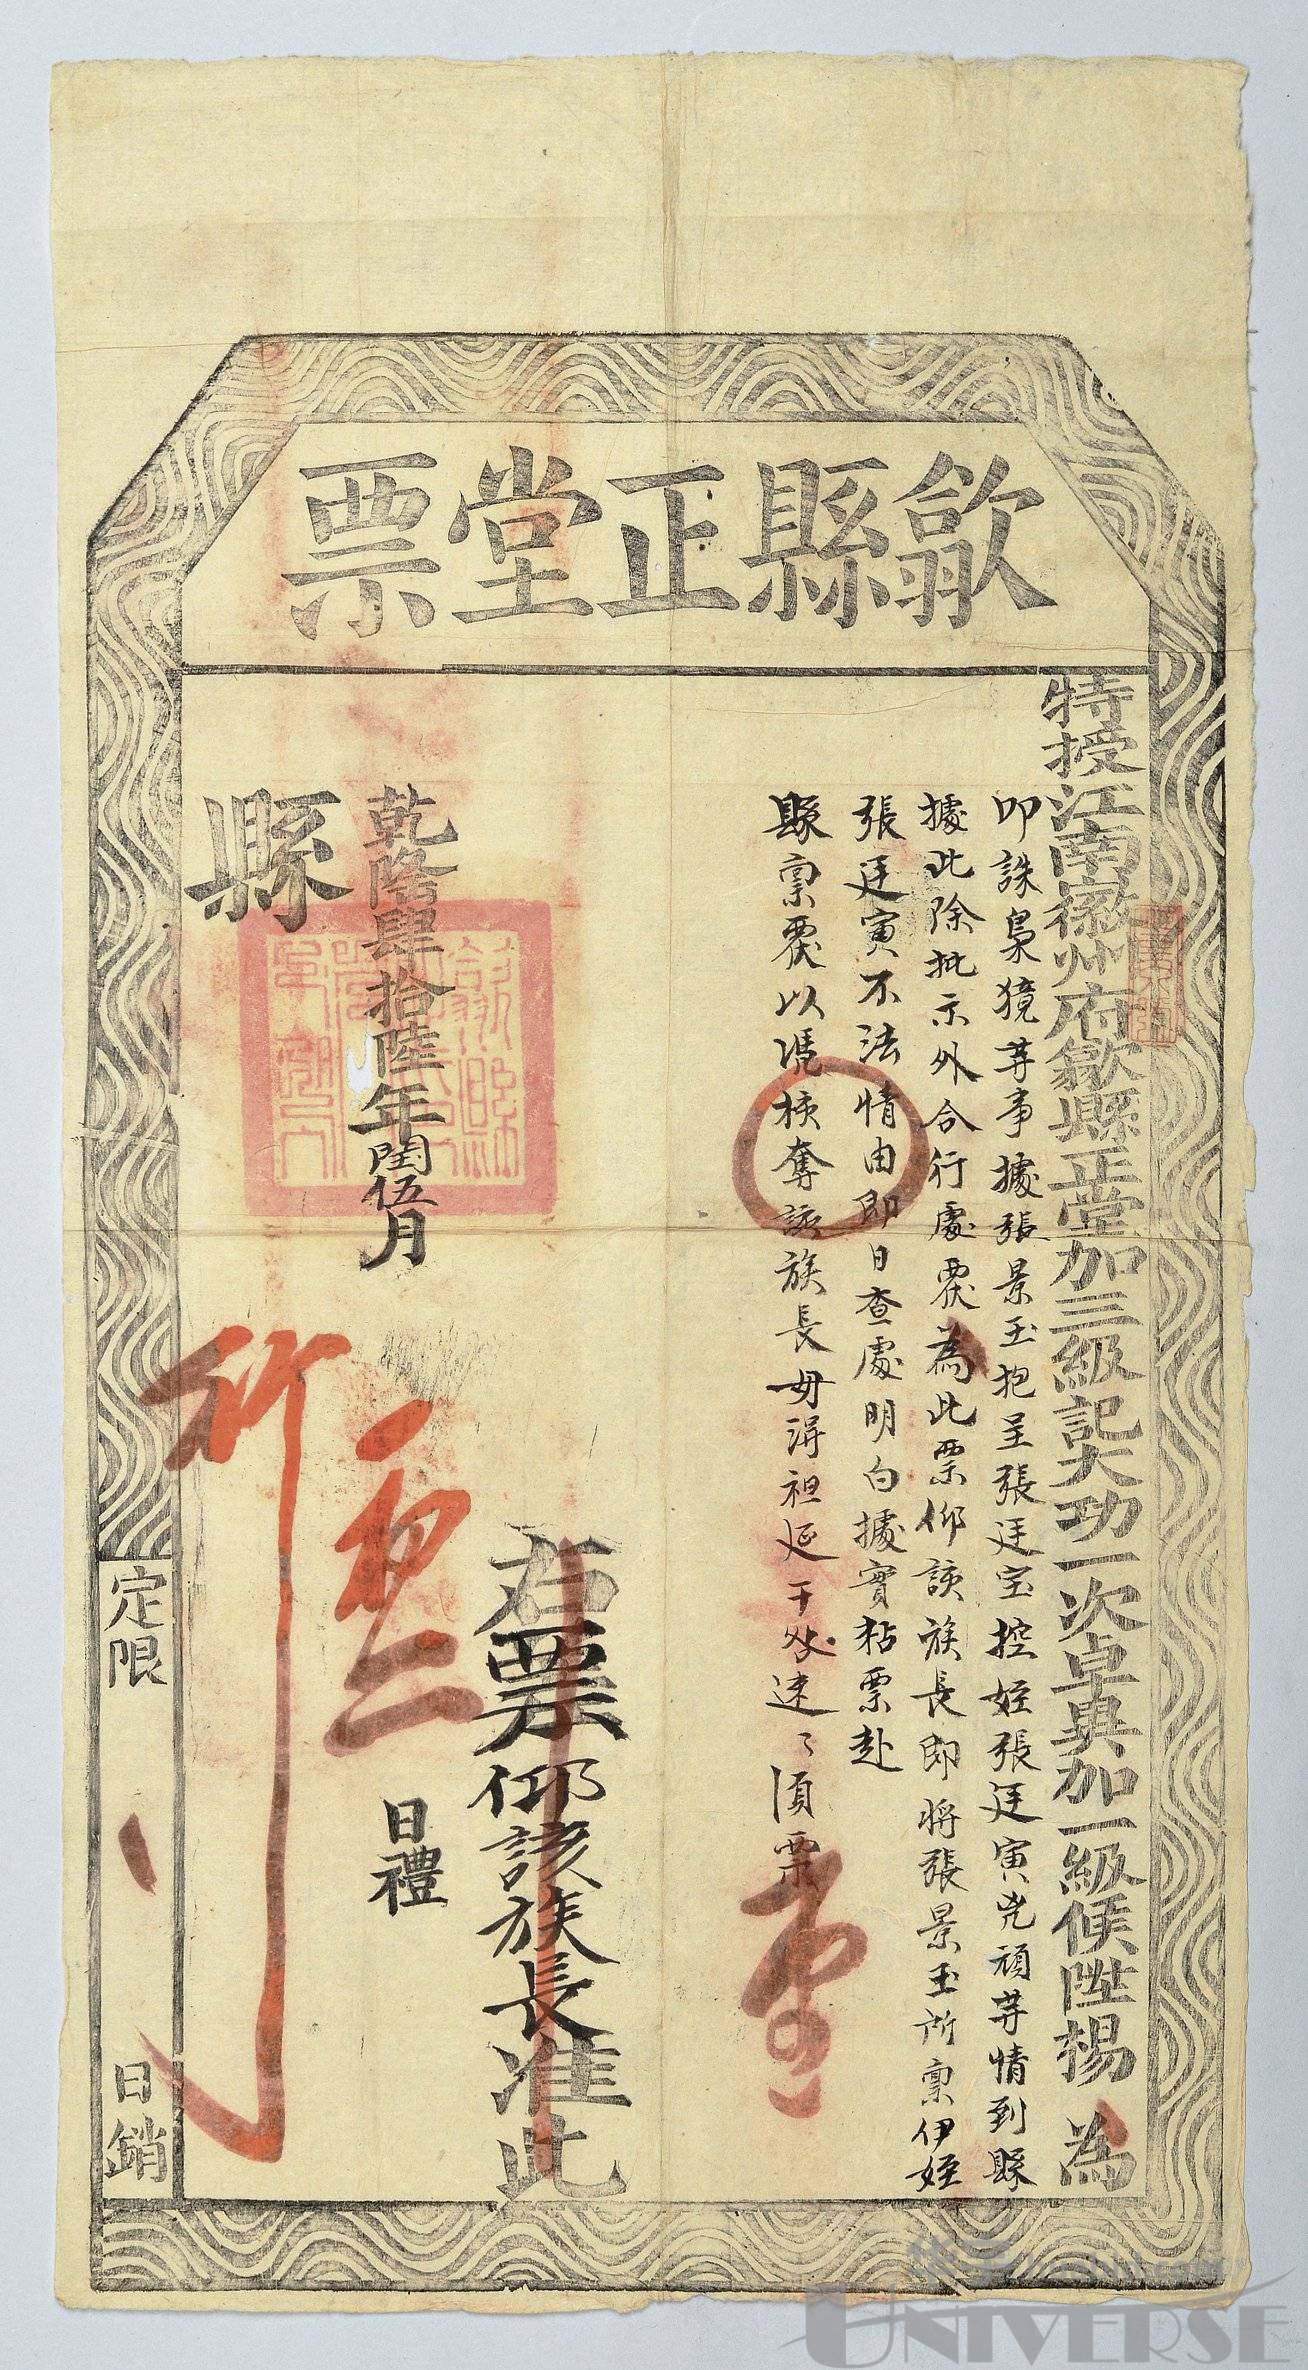 歙縣正堂票
特授江南徽州府歙縣正堂加三級記大功一次卓異加一級候陞楊 為
叩誅梟獍等事據張景玉抱呈張廷宝控姪張廷寅兇頑等情到縣
據此除批示外合行處覆為此票仰該族長即將張景玉所稟伊姪
張廷寅不法情由即日查處明白據實粘票赴
縣稟覆以憑核奪該族長毋得袒延干咎速〻須票
右票仰該族長准此
乾隆肆拾陸年閏伍月 日禮
縣
行
定限 日銷
UNIVERSE